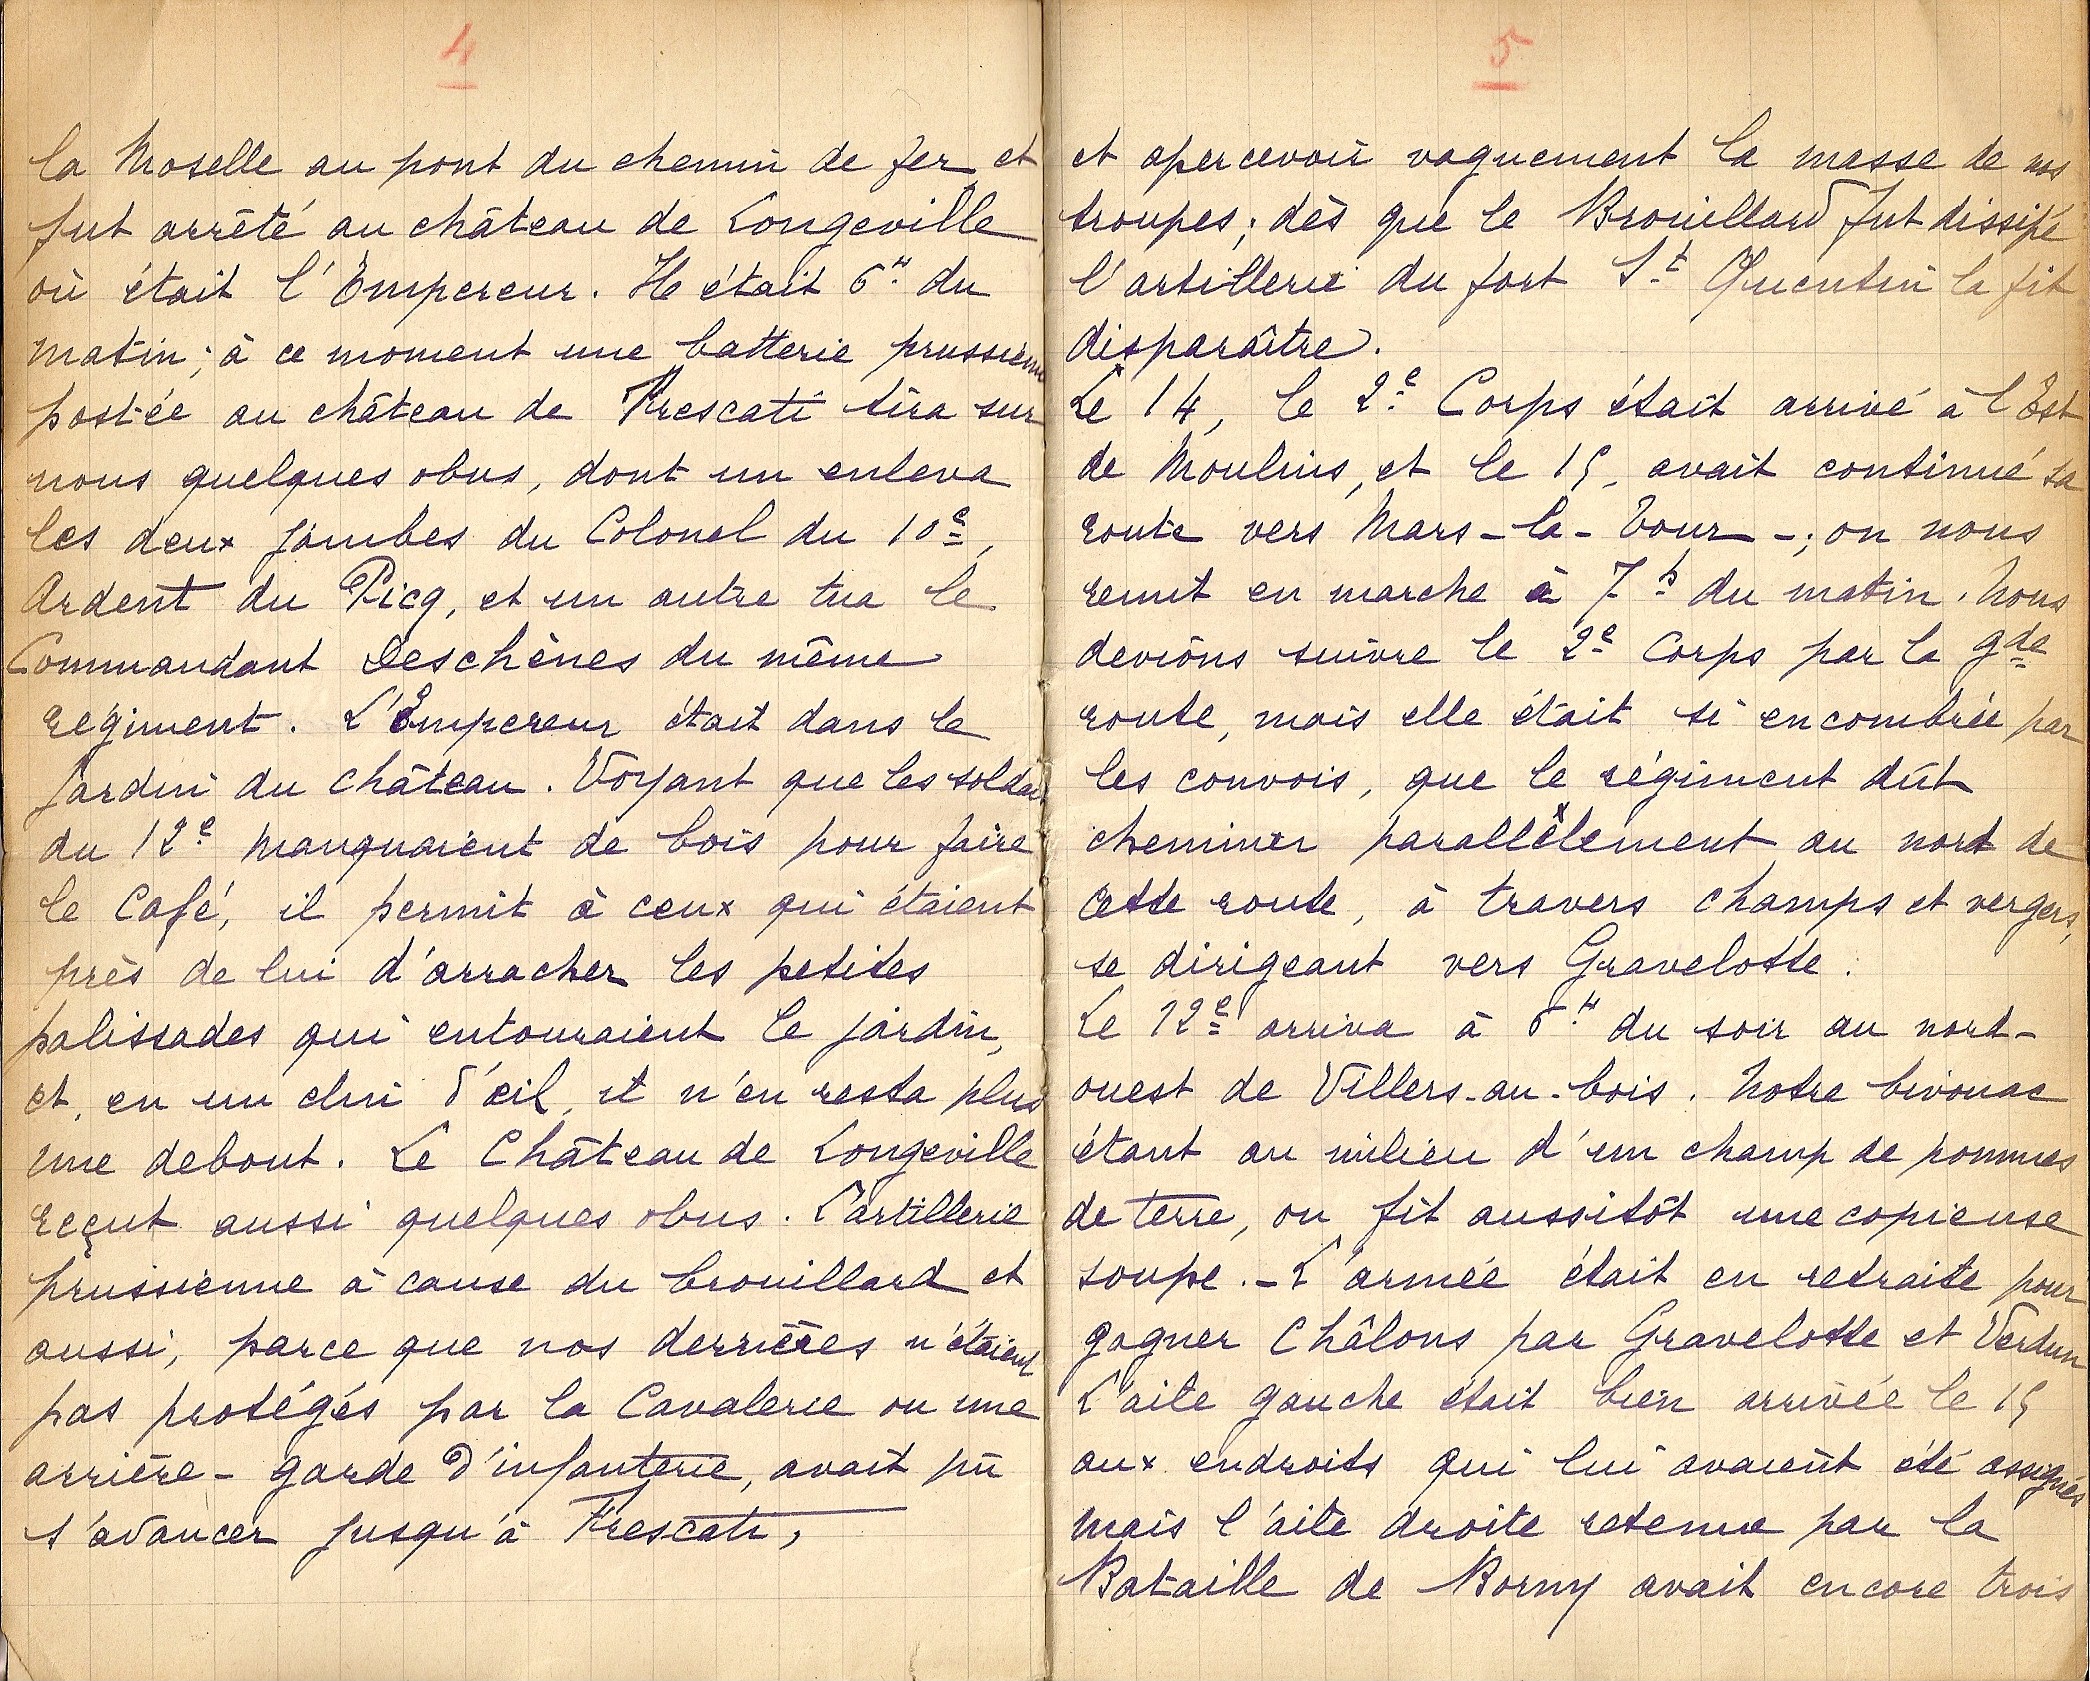 4
la Moselle au pont du chemin de fer et
fut arrêté au château de Longeville
où était l'Empereur. Il était 6h du
matin; à ce moment une batterie prussienne
postée au château de Frescati tira sur
nous quelques obus, dont un enleva
les deux jambes du Colonel du 10e,
Ardent du Picq, et un autre tua le
Commandant Deschênes du même
régiment. L'Empereur était dans le
jardin du château. Voyant que les soldats
du 12e manquaient de bois pour faire
le Café, il permit à ceux qui étaient
près de lui d'arracher les petites
palissades qui entouraient le jardin,
et, en un clin d'œil, il n'en resta plus
une debout. Le Château de Longeville
reçut aussi quelques obus. L'artillerie
prussienne à cause du brouillard et
aussi, parce que nos derrières n'étaient
pas protégés par la Cavalerie ou une
arrière-garde d'infanterie, avait pû
s'avancer jusqu'à Frescati,
5
et apercevoir vaguement la masse de nos
troupes; dès que le Brouillard fut dissipé
l'artillerie du fort St Quentin la fit
disparaître.
Le 14, le 2e Corps était arrivé à l'Est
de Moulins, et le 15, avait continué sa
route vers Mars-la-Tour-; on nous
remit en marche à 7h du matin. Nous
devions suivre le 2e Corps par la gde
route, mais elle était si encombrée par
les convois, que le régiment dût
cheminer parallèlement au nord de
cette route, à travers champs et vergers,
se dirigeant vers Gravelotte.
Le 12e arriva à 6h du soir au nord-
ouest de Villers-au-bois. Notre bivouac
étant au milieu d'un champ de pommes
de terre, on fit aussitôt une copieuse
soupe.- L'armée était en retraite pour
gagner Châlons par Gravelotte et Verdun
L'aile gauche était bien arrivée le 15
aux endroits qui lui avaient été assignés
mais l'aile droite retenue par la
Bataille de Borny avait encore trois